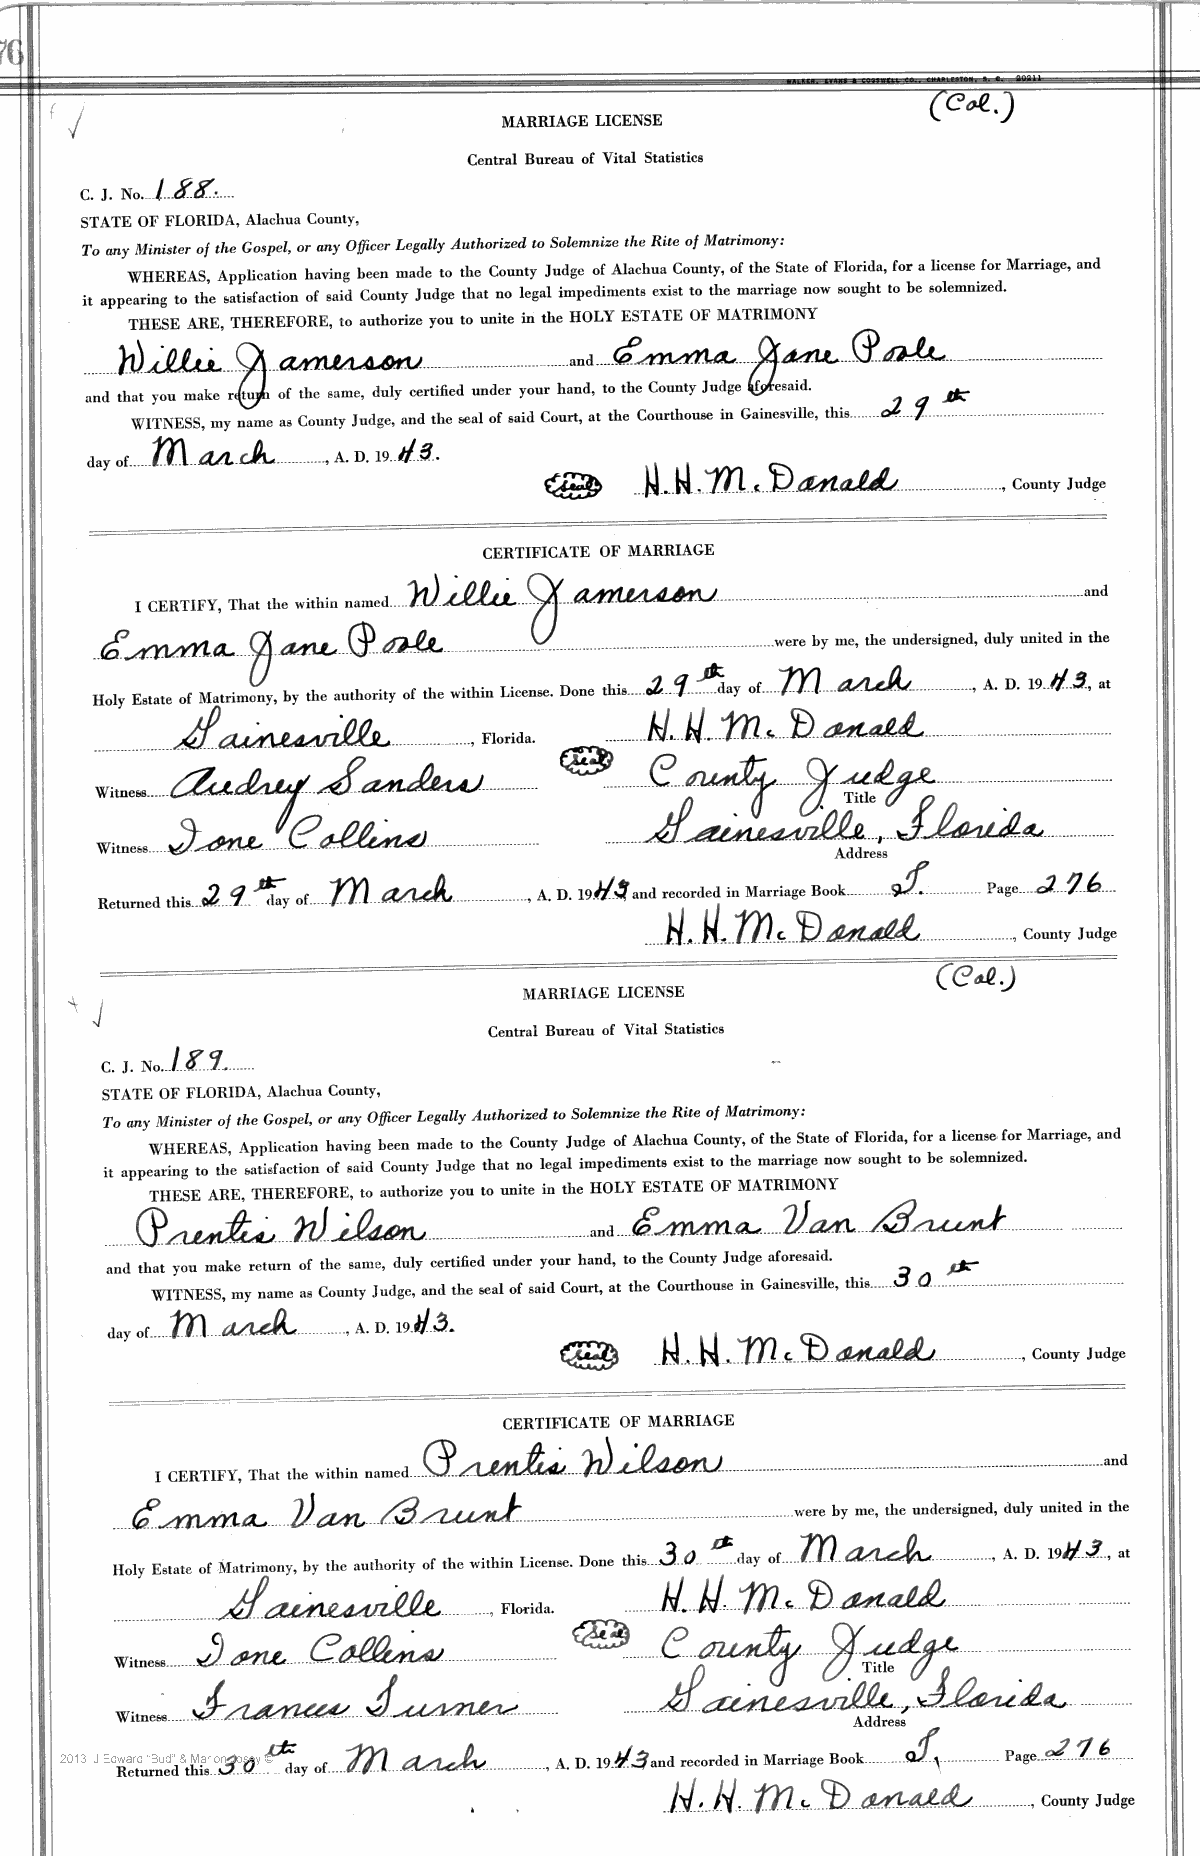 76
WALKER, EVANS & COGSWELL CO., CHARLESTON, S. C. 20211
(Col.)
MARRIAGE LICENSE
Central Bureau of Vital Statistics
C. J. No. 188.
STATE OF FLORIDA, Alachua County,
To any Minister of the Gospel, or any Officer Legally Authorized to Solemnize the Rite of Matrimony:
WHEREAS, Application having been made to the County Judge of Alachua County, of the State of Florida, for a license for Marriage, and
it appearing to the satisfaction of said County Judge that no legal impediments exist to the marriage now sought to be solemnized.
THESE ARE, THEREFORE, to authorize you to unite in the HOLY ESTATE OF MATRIMONY
Willie Jamerson and Emma Jane Poole
and that you make return of the same, duly certified under your hand, to the County Judge aforesaid.
WITNESS, my name as County Judge, and the seal of said Court, at the Courthouse in Gainesville, this 29th
day of March, A. D. 1943.
seal H. H. McDonald, County Judge
CERTIFICATE OF MARRIAGE
I CERTIFY, That the within named Willie Jamerson and
Emma Jane Poole were by me, the undersigned, duly united in the
Holy Estate of Matrimony, by the authority of the within License. Done this 29th day of March, A. D. 1943, at
Gainesville, Florida. H. H. McDonald
seal
Witness Audrey Sanders County Judge
Title
Witness Ione Collins Gainesville, Florida
Address
Returned this 29th day of March, A. D. 1943 and recorded in Marriage Book Page 276
H. H. McDonald, County Judge
(Col.)
MARRIAGE LICENSE
Central Bureau of Vital Statistics
C. J. No. 189.
STATE OF FLORIDA, Alachua County,
To any Minister of the Gospel, or any Officer Legally Authorized to Solemnize the Rite of Matrimony:
WHEREAS, Application having been made to the County Judge of Alachua County, of the State of Florida, for a license for Marriage, and
it appearing to the satisfaction of said County Judge that no legal impediments exist to the marriage now sought to be solemnized.
THESE ARE, THEREFORE, to authorize you to unite in the HOLY ESTATE OF MATRIMONY
Prentis Wilson and Emma Van Brunt
and that you make return of the same, duly certified under your hand, to the County Judge aforesaid.
WITNESS, my name as County Judge, and the seal of said Court, at the Courthouse in Gainesville, this 30th
day of March, A. D. 1943.
seal H. H. McDonald, County Judge
CERTIFICATE OF MARRIAGE
I CERTIFY, That the within named Prentis Wilson and
Emma Van Brunt were by me, the undersigned, duly united in the
Holy Estate of Matrimony, by the authority of the within License. Done this 30th day of March, A. D. 1943, at
Gainesville, Florida. H. H. McDonald
seal
Witness Ione Collins County Judge
Title
Witness Frances Turner Gainesville, Florida
Address
2013 J Edward "Bud" & Marion Josey ©
Returned this 30th day of March, A. D. 1943 and recorded in Marriage Book Page 276
H. H. McDonald, County Judge